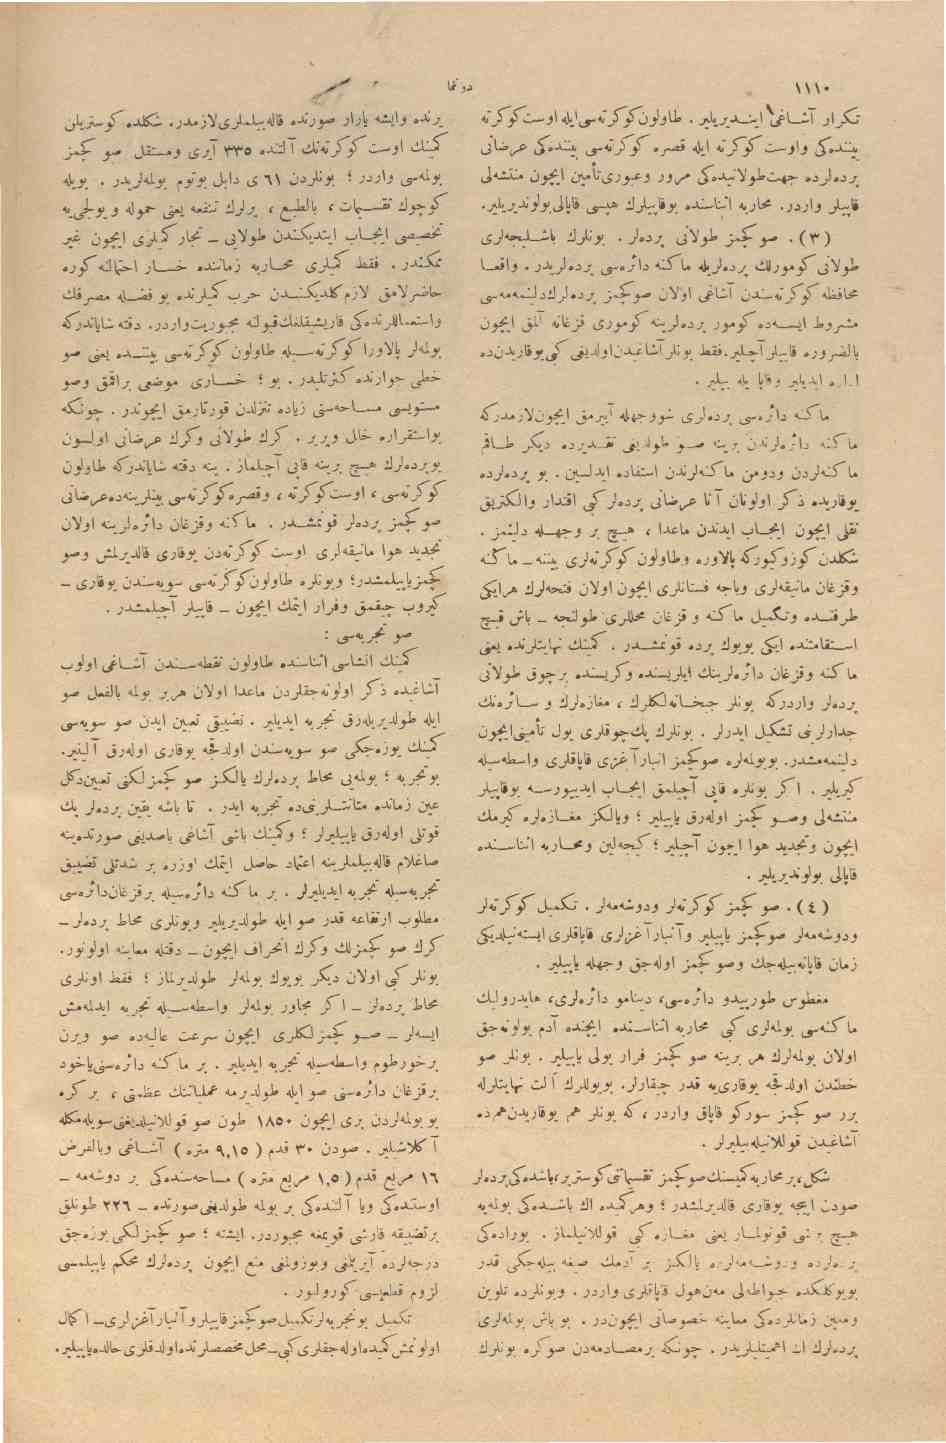 ١١١٠
دونما
تكرار آشاغى ايندیريلير . طاولون كوكرته‌سى ايله اوست كوكرته
بيننده‌كى واوست كوكرته ايله قصره كوكرته‌سى بيننده‌كى عرضانى
پرده‌لرده جهت طولانيده‌كى مرور وعبورى تأمين ايچون منتشه‌لى
قاپيلر واردر. محاربه اثناسنده بوقاپيلرك هپسى قاپالى بولونديريلير.
(٣) . صو كچمز طولانى پرده‌لر . بونلرك باشليجه‌لرى
طولانى كومورلك پرده‌لريله ماكنه دائره‌سى پرده‌لريدر . واقعا
محافظه كوكرته‌سندن آشاغى اولان صوكچمز پرده‌لرك دلينمه‌مه‌سى
مشروط ايسه‌ده كومور پرده‌لرينه كومورى قزغانه آلمق ايچون
بالضروره قاپيلر آچيلير. فقط بونلر آشاغيدن اولديغى كبى يوقاريدن ده
اداره ايديلير وقاپا يله بيلير .
ماكنه دائره‌سى پرده‌لرى شووجهله آييرمق ايچون لازمدركه
ماكنه دائره‌لرندن برينه صو طولديغى تقديرده ديكر طاقم
ماكنه‌لردن ودومن ماكنه‌لرندن استفاده ايدلسين . بو پرده‌لرده
يوقاريده ذكر اولونان آنا عرضانى پرده‌لر كبى اقتدار والكتريق
نقلى ايچون ايجاب ايدندن ماعدا ، هيچ بر وجهله دلينمز .
شكلدن كوزوكيوركه پالاوره وطاولون كوكرته‌لرى بيننه ــ ماكنه
وقزغان مانيقه‌لرى وباجه فستانلرى ايچون اولان فتحه‌لرك هرايكى
طرفنده وتكميل ماكنه و قزغان محللرى طولنجه ــ باش قيچ
استقامتنده ايكى بويوك پرده قونمشدر . كمينك نهايتلرنده يعنى
ماكنه وقزغان دائره‌لرينك ايلريسنده وكريسنده برچوق طولانى
پرده‌لر واردركه بونلر جبخانه‌لكلرك ، مغازه‌لرك و سائره‌نك
جدارلرينى تشكيل ايدرلر . بونلرك پك‌چوقلرى يول تأمينى ايچون
دلينمه‌مشدر. بوبولمه‌لره صوكچمز انبار آغزى قاپاقلرى واسطه‌سيله
كيريلير . اكر بونلره قاپى آچيلمق ايجاب ايدييورسه بوقاپيلر
منتشه‌لى وصو كچمز اوله‌رق ياپيلير ؛ ويالكز مغازه‌لره كيرمك
ايچون وتجديد هوا ايچون آچيلير ؛ كيجه‌لين ومحاربه اثناسنده
قاپالى بولونديريلير .
(٤) . صو كچمز كوكرته‌لر ودوشه‌مه‌لر . تكميل كوكرته‌لر
ودوشه‌مه‌لر صوكچمز ياپيلير وآنبار آغزلرى قاپاقلرى ايسته‌نيلديكى
زمان قاپانه‌بيله‌جك وصو كچمز اوله‌جق وجهله ياپيلير .
مغطوس طورپيدو دائره‌سى، دينامو دائره‌لرى، هايدروليك
ماكنه‌سى بولمه‌لرى كبى محاربه اثناسنده ايچنده آدم بولونه‌جق
اولان بولمه‌لرك هر برينه صو كچمز فرار يولى ياپيلير . بونلر صو
خطندن اولدقجه يوقارى‌يه قدر چيقارلر. بويوللرك آلت نهايتلرله
برر صو كچمز سوركو قاپاق واردر ، كه بونلر هم يوقاريدن هم ده
آشاغيدن قوللانيله‌بيليرلر .
شكل، بر محاربه كميسنك صوكچمز تقسيماتنى كوسترير، باشده‌كى پرده‌لر
صودن ايجه يوقارى قالديرلمشدر ؛ وهر كميده اك باشده‌كى بولمه‌يه
هيچ بر شى قونولماز يعنى مغازه كبى قوللانيلماز . بوراده‌كى
پرده‌لرده ودوشه‌مه‌لرده يالكز بر آدمك صيغه بيله‌جكى قدر
بويوكلكده جيواطه‌لى مه‌ن‌هول قاپاقلرى واردر . وبونلرده تلوين
ومعين زمانلرده‌كى معاينه خصوصاتى ايچون‌در . بو باش بولمه‌لرى
پرده‌لرك اك اهميتليلريدر . چونكه برمصادمه‌دن صوكره بونلرك
يرنده وايشه يارار صورتده قاله‌بيلملرى لازمدر. شكلده كوستريلن
كمينك اوست كوكرته‌نك آلتنده ٣٣٥ آيرى ومستقل صو كچمز
بولمه‌سى واردر ؛ بونلردن ٦١ ى دابل بوتوم بولمه‌لريدر . بويله
كوچوك تقسيمات ، بالطبع ، يرلرك تنفعه يعنى حموله ويولجى‌يه
تخصيصى ايجاب ايتديكندن طولايى ــ تجار كميلرى ايچون غير
ممكندر . فقط كميلرى محاربه زماننده خسار احتمالنه كوره
حاضرلامق لازم كلديكندن حرب كميلرنده بو فضله مصرفك
واستعماللرنده‌كى قاريشيقلغك قبولنه مجبوريت واردر. دقته شاياندركه
بولمه‌لر پالاورا كوكرته‌سيله طاولون كوكرته‌سى بيننده يعنى صو
خطى جوارنده كثرتليدر . بو ؛ خسارى موضعى براقمق وصو
مستويسى مساحه‌سنى زياده تنزلدن قورتارمق ايچوندر . چونكه
بواستقراره خلل ويرير . كرك طولانى وكرك عرضانى اولسون
بوپرده‌لرك هيچ برينه قاپى آچيلماز . ينه دقته شاياندركه طاولون
كوكرته‌سى ، اوست كوكرته ، وقصره كوكرته‌سى بينلرينده‌ده عرضانى
صوكچمز پرده‌لر قونمشدر . ماكنه وقزغان دائره‌لرينه اولان
تجديد هوا مانيقه‌لرى اوست كوكرته‌دن يوقارى قالديرلمش وصو
كچمز ياپيلمشدر؛ وبونلره طاولون كوكرته‌سى سويه‌سندن يوقارى ــ
كيروب چيقمق وفرار ايتمك ايچون ــ قاپيلر آچيلمشدر .
صو تجربه‌سى :
كمينك انشاسى اثناسنده طاولون نقطه‌سندن آشاغى اولوب
آشاغيده ذكر اولونه‌جقلردن ماعدا اولان هربر بولمه بالفعل صو
ايله طولديريله‌رق تجربه ايديلير . تضييقى تعيين ايدن صو سويه‌سى
كمينك يوزه‌جكى صو سويه‌سندن اولدقجه يوقارى اوله‌رق آلينير.
بوتجربه ؛ بولمه‌يى محاط پرده‌لرك يالكز صو كچمزلكنى تعيين دكل
عين زمانده متانتلرينى‌ده تجربه ايدر . تا باشه يقين پرده‌لر پك
قوتلى اوله‌رق ياپيليرلر ؛ وكمينك باشى آشاغى باصديغى صورتده ينه
صاغلام قاله‌بيلملرينه اعتماد حاصل ايتمك اوزره بر شدتلى تضييق
تجربه‌سيله تجربه ايديليرلر . بر ماكنه دائره‌سيله برقزغان دائره‌سى
مطلوب ارتفاعه قدر صو ايله طولديريلير وبونلرى محاط پرده‌لر ــ
كرك صو كچمزلك وكرك انحراف ايچون ــ دقتله معاينه اولونور.
بونلر كبى اولان ديكر بويوك بولمه‌لر طولديريلماز ؛ فقط اونلرى
محاط پرده‌لر ــ اكر مجاور بولمه‌لر واسطه‌سيله تجربه ايدلمه‌مش
ايسه‌لر ــ صو كچمزلكلرى ايچون سرعت عاليه‌ده صو ويرن
برخورطوم واسطه‌سيله تجربه ايديلير . بر ماكنه دائره‌سنى ياخود
برقزغان دائره‌سنى صو ايله طولديرمه عملياتنك عظمتى ، بر كره
بو بولمه‌لردن برى ايچون ١٨٥٠ طون صو قوللانيلديغنى سويله‌مكله
آكلاشيلير . صودن ٣٠ قدم (٩,١٥ متره) آشاغى وبالفرض
١٦ مربع قدم (١,٥ مربع متره) مساحه‌سنده‌كى بر دوشه‌مه ــ
اوستنده‌كى ويا آلتنده‌كى بر بولمه طولديغى صورتده ــ ٢٢٦ طونلق
برتضييقه قارشى قويمغه مجبوردر. ايشته ؛ صو كچمزلكى بوزه‌جق
درجه‌لرده آيريلمغى وبوزولمغى منع ايچون پرده‌لرك محكم ياپيلمسى
لزوم قطعيسى كورولور .
تكميل بو تجربه‌لر تكميل صو كچمز قاپيلر و آنبار آغزلرى ــ اكمال
اولونمش كميده اوله‌جقلرى كبى ــ محل مخصصلرنده اولدقلرى حالده ياپيلير.